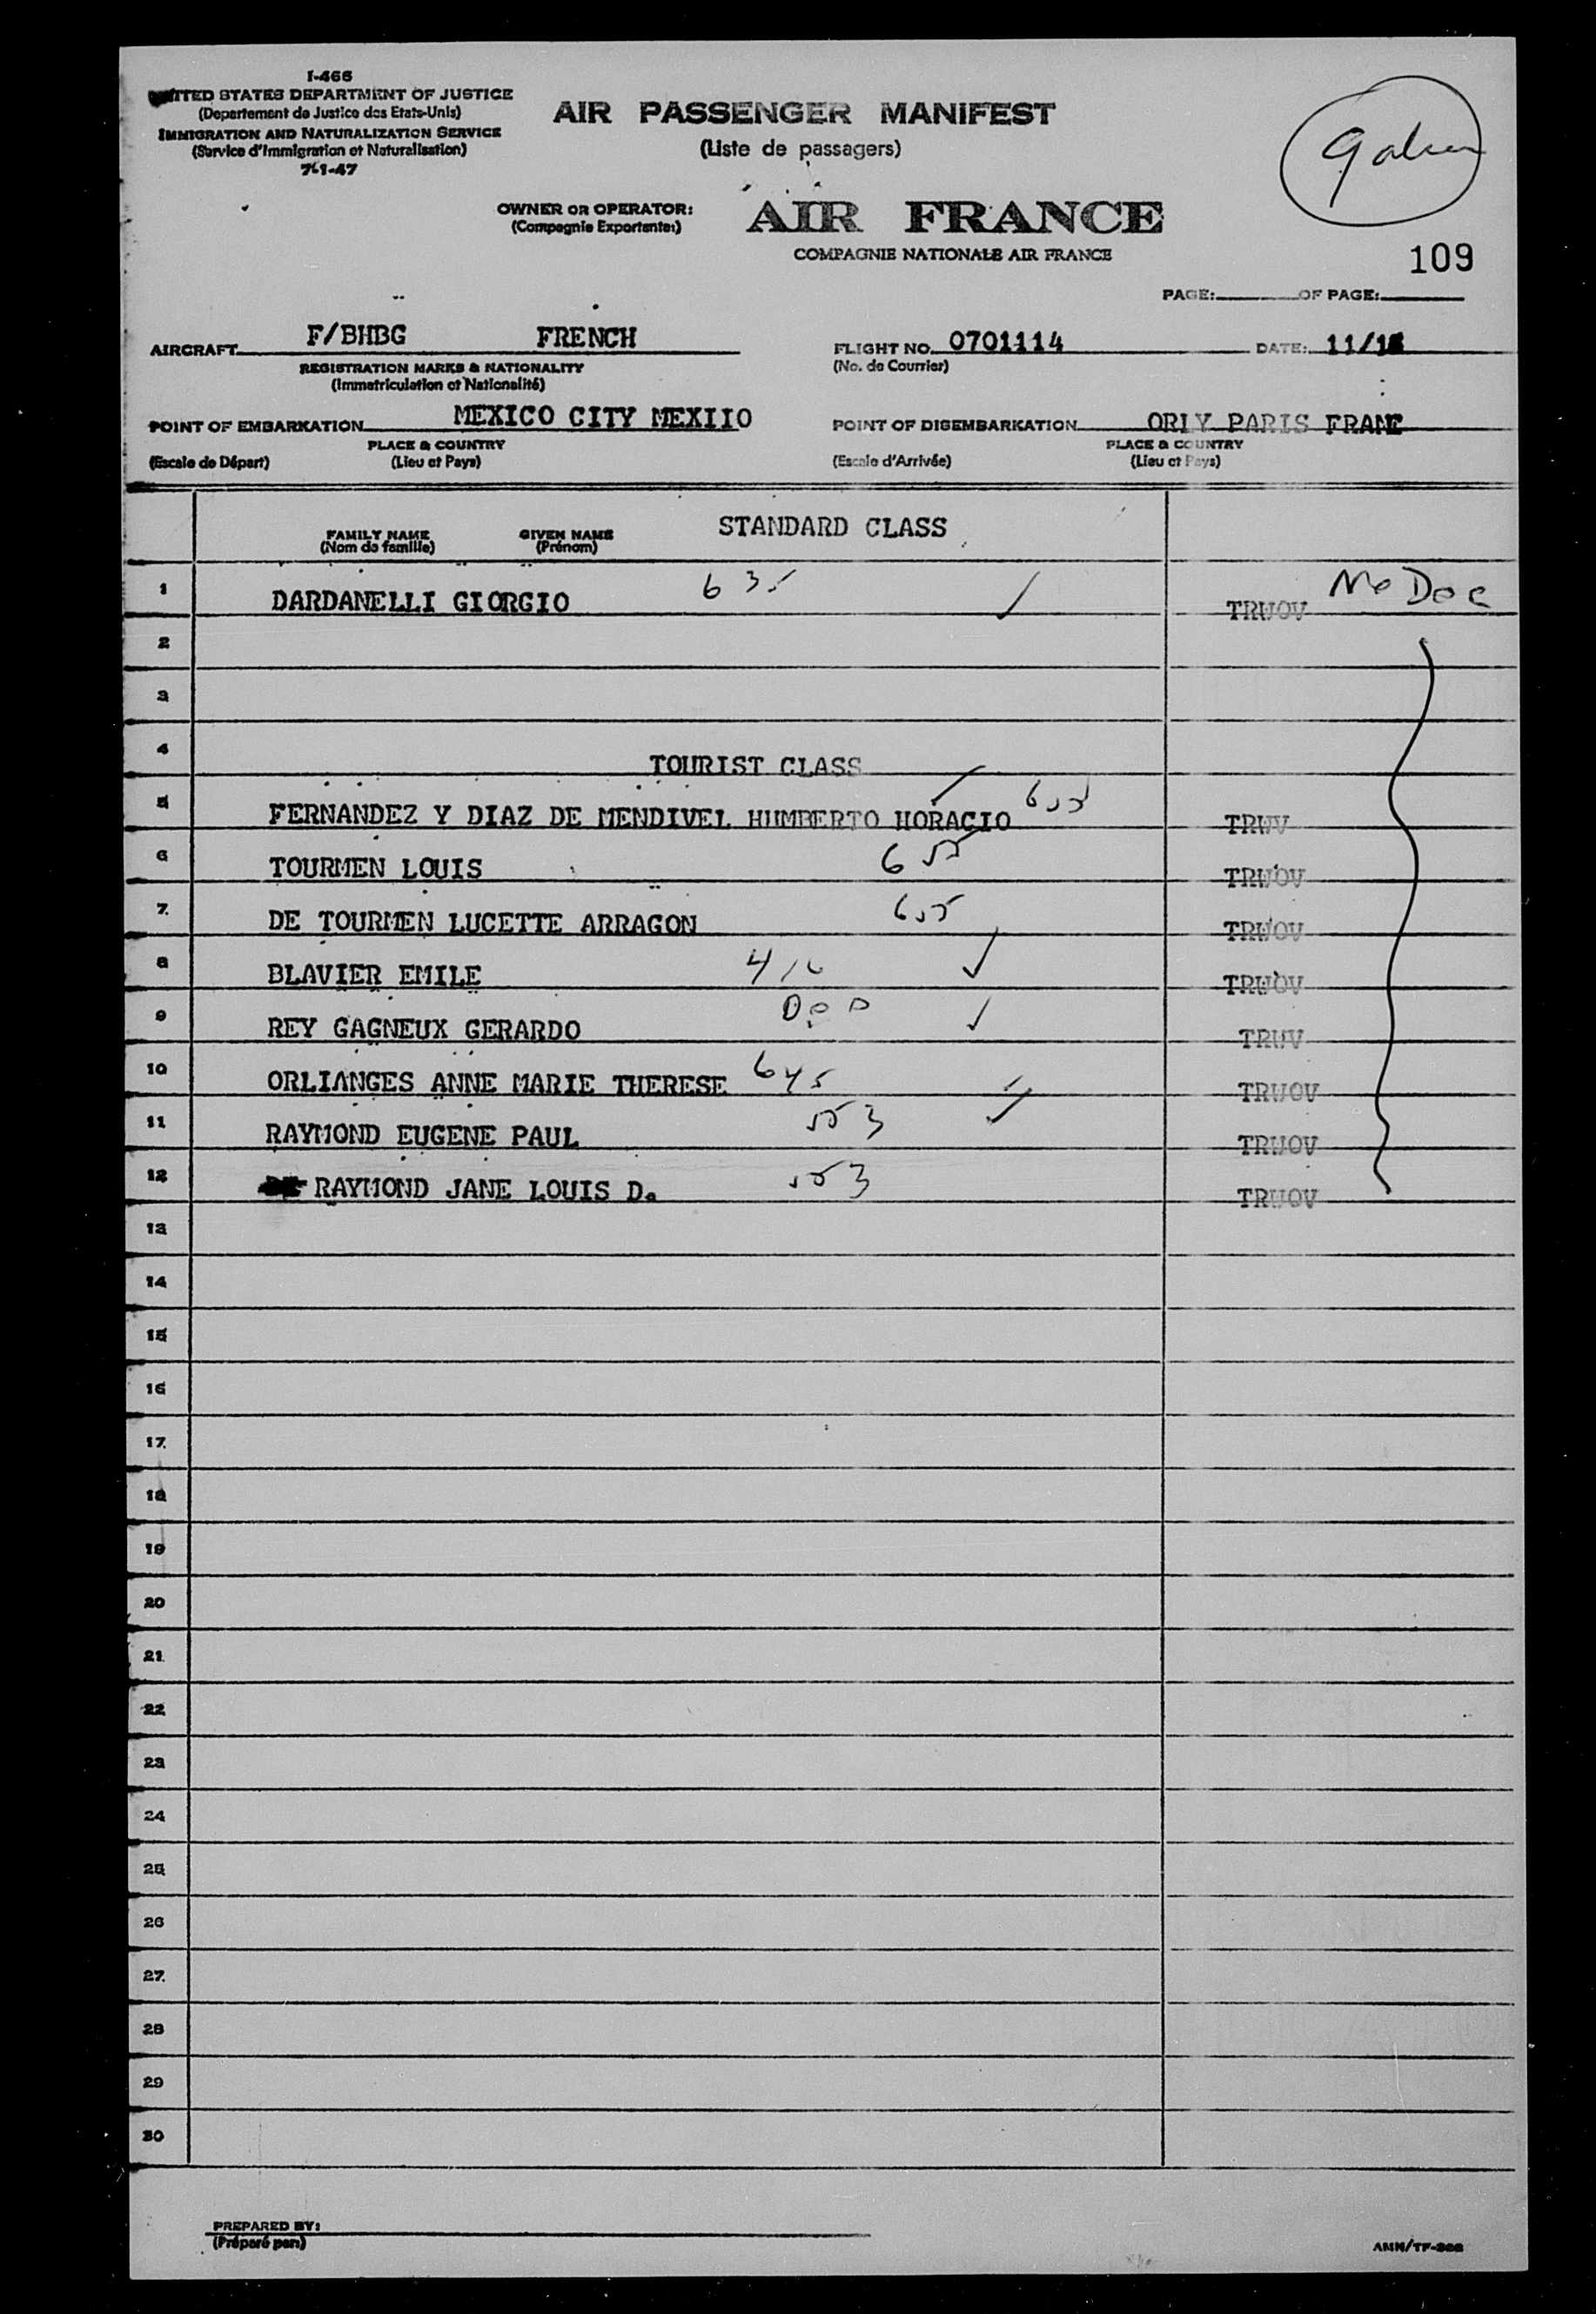 I-466
UNITED STATES DEPARTMENT OF JUSTICE
(Departement de Justice des Etats-Unis)
IMMIGRATION AND NATURALIZATION SERVICE
(Service d'Immigration et Naturalisation)
7-1-47
AIR PASSENGER MANIFEST
(Liste de passagers)
OWNER OR OPERATOR:
(Compagnie Exportante:)
AIR FRANCE
COMPAGNIE NATIONALE AIR FRANCE
109
PAGE: OF PAGE:
AIRCRAFT F/BHBG FRENCH
REGISTRATION MARKS & NATIONALITY
(Immatriculation et Nationalité)
FLIGHT NO. 0701114 DATE: 11/
(No. de Courrier)
POINT OF EMBARKATION MEXICO CITY MEXIIO
PLACE & COUNTRY
(Escale de Départ) (Lieu et Pays)
POINT OF DISEMBARKATION ORLY PARIS FRANE
PLACE & COUNTRY
(Escale d'Arrivée) (Lieu et Pays)
FAMILY NAME GIVEN NAME STANDARD CLASS
(Nom de famille) (Prénom)
1 DARDANELLI GIORGIO 635 TRWOV No Doc
2
3
4 TOURIST CLASS
5 FERNANDEZ Y DIAZ DE MENDIVEL HUMBERTO HORACIO 655 TRWV
6 TOURMEN LOUIS 655 TRWOV
7. DE TOURMEN LUCETTE ARRAGON 655 TRWOV
8 BLAVIER EMILE TRWOV
9 REY GAGNEUX GERARDO TRWV
10 ORLIANGES ANNE MARIE THERESE 645 TRWOV
11 RAYMOND EUGENE PAUL 553 TRWOV
12 RAYMOND JANE LOUIS D. 553 TRWOV
13
14
15
16
17.
18
19
20
21
22
23
24
25
26
27.
28
29
30
PREPARED BY:
(Préparé par:)